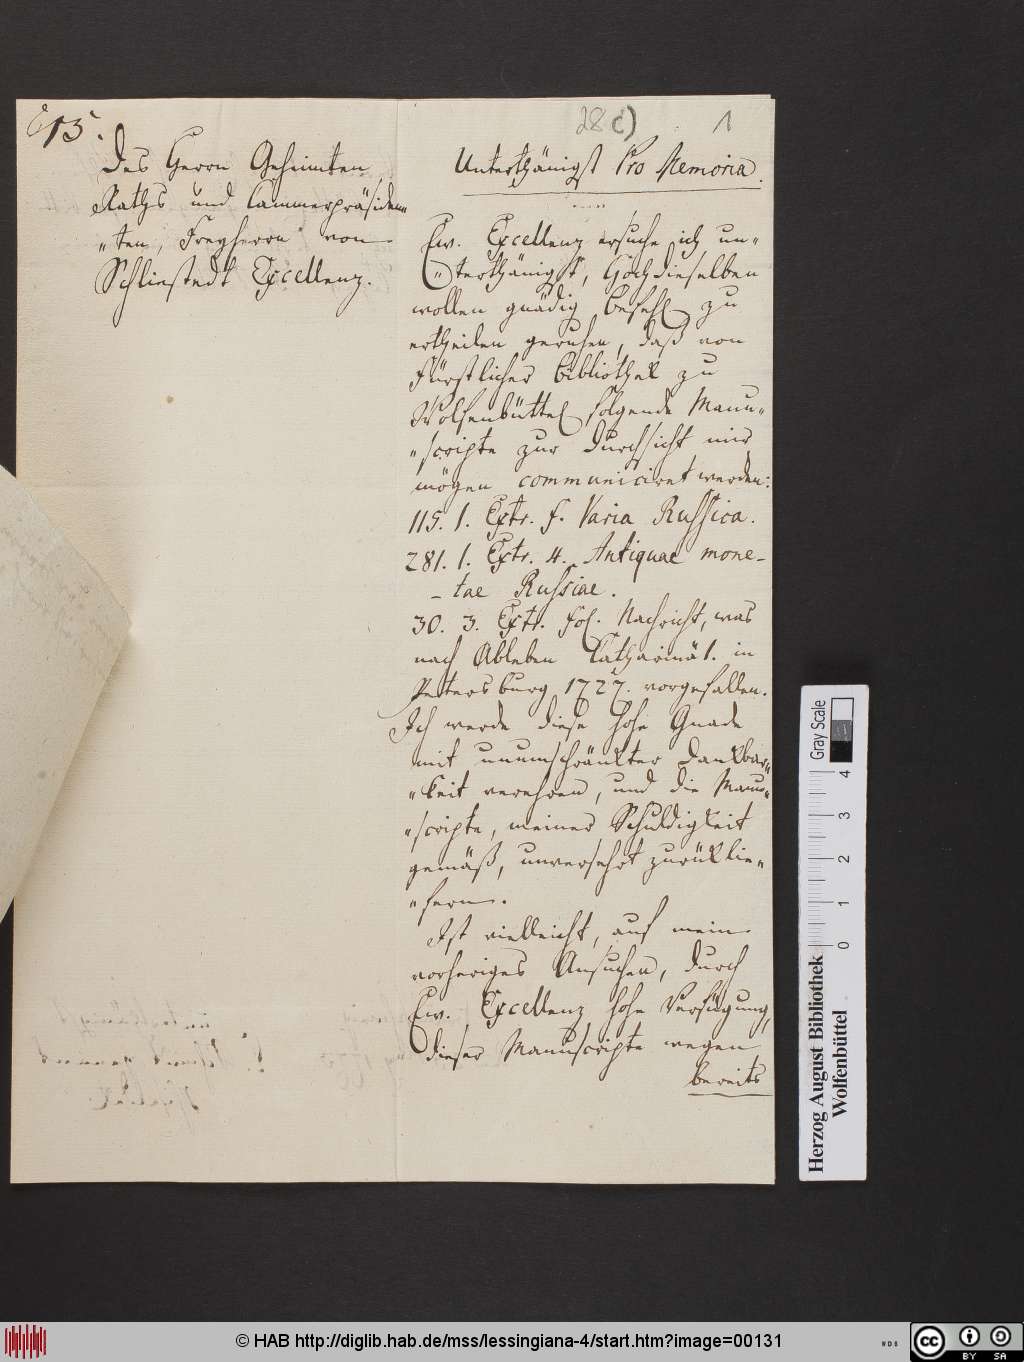 15.
28 c)
1
Des Herrn Geheimten
Raths und Cammerpräsiden„
„ten, Freyherrn von
Schliestedt Excellenz.
Unterthänigst Pro Memoria.
Ew. Excellenz ersuche ich un„
„terthänigst, Hochdieselben
wollen gnädig Befehl zu
ertheilen geruhen, daß von
Fürstlicher Bibliothek zu
Wolfenbüttel folgende Manu„
„scripte zur Durchsicht mir
mögen communiciret werden:
115. 1. Extr. f. Varia Russica.
281. 1. Extr. 4. Antiquae mone-
- tae Russiae.
30. 3. Extr. fol. Nachricht, was
nach Ableben Catharinä 1. in
Petersburg 1727. vorgefallen.
Ich werde diese hohe Gnade
mit unumschränkter Dankbar„
„keit verehren, und die Manu„
„scripte, meiner Schuldigkeit
gemäß, unversehrt zurük lie„
„fern.
Ist vielleicht, auf mein
vorheriges Ansuchen, durch
Ew. Excellenz hohe Verfügung,
dieser Manuscripte wegen
bereits
Gray Scale
4
3
2
1
0
Herzog August Bibliothek
Wolfenbüttel
© HAB http://diglib.hab.de/mss/lessingiana-4/start.htm?image=00131
cc
BY SA